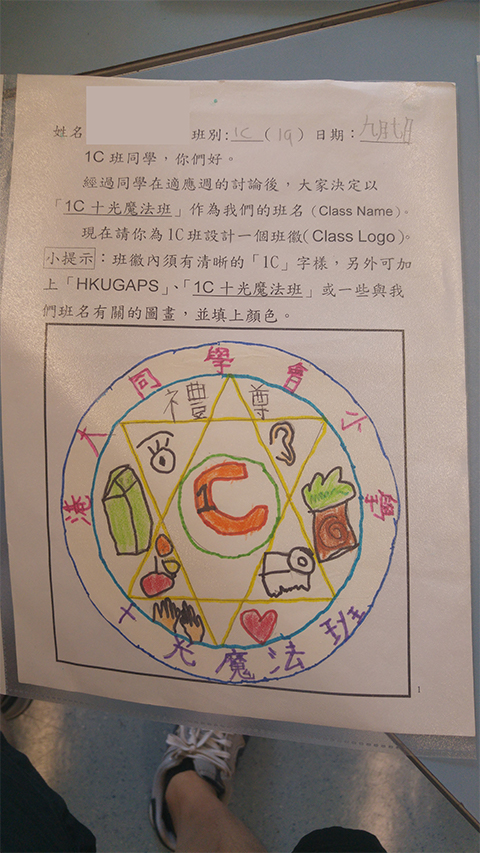 姓名 班別:1C(19)日期:九月七日
1C 班同學,你們好。
經過同學在適應週的討論後,大家決定以
「1C 十光魔法班」作為我們的班名(Class Name)。
現在請你為 1C 班設計一個班徽(Class Logo)。
小提示:班徽內須有清晰的「1C」字樣,另外可加
上「HKUGAPS」、「1C 十光魔法班」或一些與我
們班名有關的圖畫,並填上顏色。
港大同學會小學
禮尊
1C
十光魔法班
1